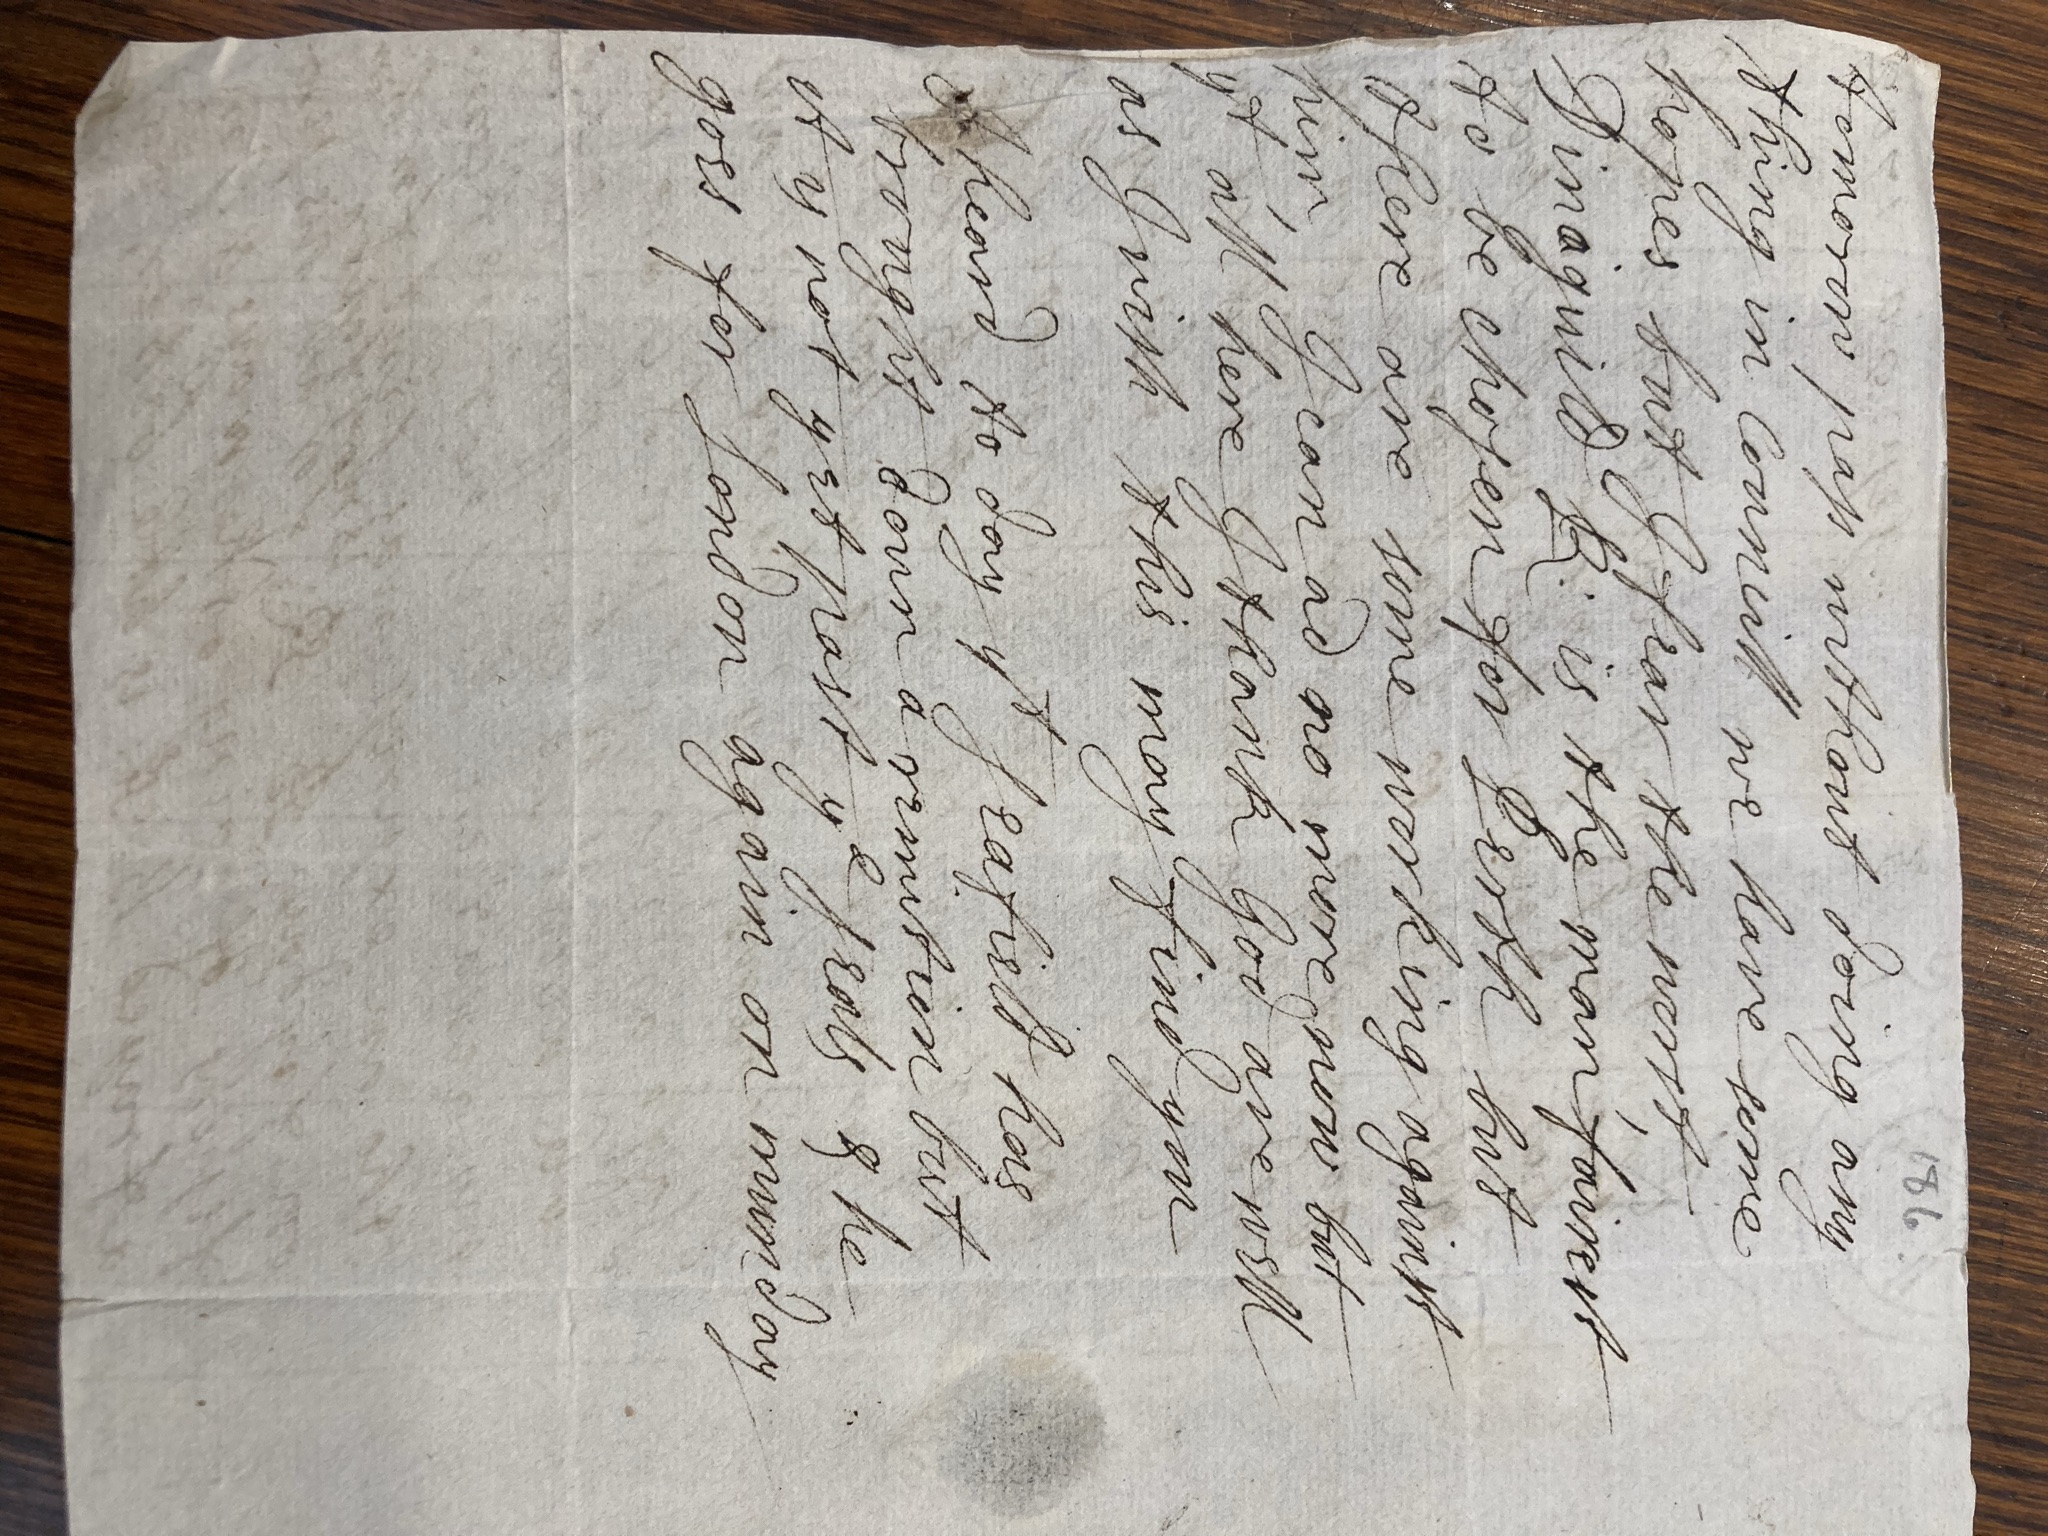 186
tomorow pass without doing any
thing in Councill we have some
hopes but I fear the worst,
R: is the man fairest
to be chosen for Perth but
there are some working against
him, I can ad no more now but
yt all here I thank God are well
as I wish this may find you
I heard to day yt Seafield has
brought doun a remition but
it is not yet past ye seals & he
goes for London again on munday